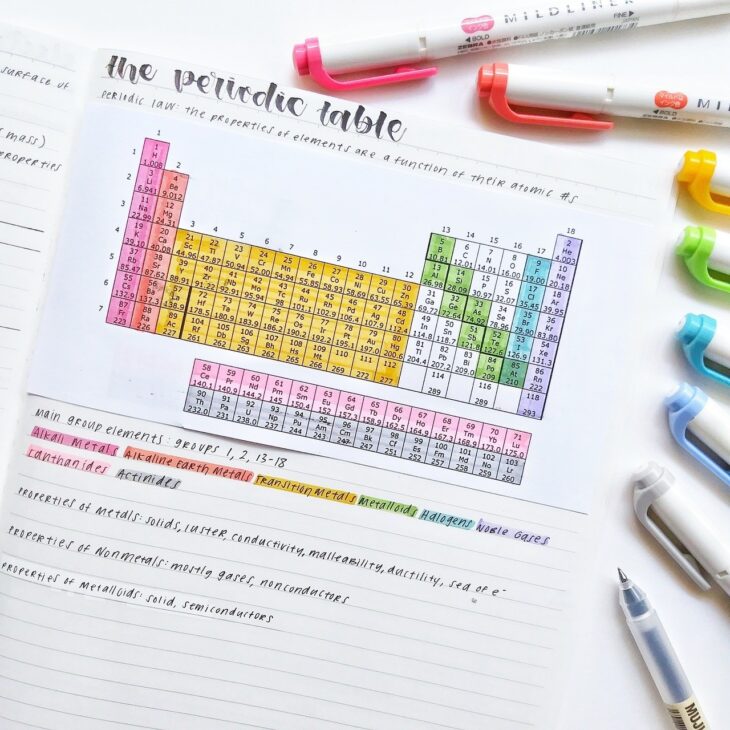 SURFACE OF
MASS)
PROPERTIES
the periodic table
PERIODIC LAW: THE PROPERTIES OF ELEMENTS ARE A FUNCTION OF THEIR ATOMIC #S
1 18
1 2 13 14 15 16 17 2
1 H He
1.008 4.003
2 3 4 5 6 7 8 9 10
Li Be B C N O F Ne
6.941 9.012 10.81 12.01 14.01 16.00 19.00 20.18
3 11 12 3 4 5 6 7 8 9 10 11 12 13 14 15 16 17 18
Na Mg Al Si P S Cl Ar
22.99 24.31 26.98 28.09 30.97 32.07 35.45 39.95
4 19 20 21 22 23 24 25 26 27 28 29 30 31 32 33 34 35 36
K Ca Sc Ti V Cr Mn Fe Co Ni Cu Zn Ga Ge As Se Br Kr
39.10 40.08 44.96 47.87 50.94 52.00 54.94 55.85 58.93 58.69 63.55 65.39 69.72 72.64 74.92 78.96 79.90 83.80
5 37 38 39 40 41 42 43 44 45 46 47 48 49 50 51 52 53 54
Rb Sr Y Zr Nb Mo Tc Ru Rh Pd Ag Cd In Sn Sb Te I Xe
85.47 87.62 88.91 91.22 92.91 95.94 98 101.1 102.9 106.4 107.9 112.4 114.8 118.7 121.8 127.6 126.9 131.3
6 55 56 57 72 73 74 75 76 77 78 79 80 81 82 83 84 85 86
Cs Ba La Hf Ta W Re Os Ir Pt Au Hg Tl Pb Bi Po At Rn
132.9 137.3 138.9 178.5 180.9 183.9 186.2 190.2 192.2 195.1 197.0 200.6 204.4 207.2 209.0 209 210 222
7 87 88 89 104 105 106 107 108 109 110 111 112 114 116 118
Fr Ra Ac Rf Db Sg Bh Hs Mt
223 226 227 261 262 263 262 265 266 269 272 277 289 289 293
58 59 60 61 62 63 64 65 66 67 68 69 70 71
Ce Pr Nd Pm Sm Eu Gd Tb Dy Ho Er Tm Yb Lu
140.1 140.9 144.2 145 150.4 152 157.3 158.9 162.5 164.9 167.3 168.9 173.0 175.0
90 91 92 93 94 95 96 97 98 99 100 101 102 103
Th Pa U Np Pu Am Cm Bk Cf Es Fm Md No Lr
232.0 231.0 238.0 237 244 243 247 247 251 252 257 258 259 260
MAIN GROUP ELEMENTS: GROUPS 1, 2, 13-18
ALKALI METALS ALKALINE EARTH METALS TRANSITION METALS METALLOIDS HALOGENS NOBLE GASES
LANTHANIDES ACTINIDES
PROPERTIES OF METALS: SOLIDS, LUSTER, CONDUCTIVITY, MALLEABILITY, DUCTILITY, SEA OF e-
PROPERTIES OF NONMETALS: MOSTLY GASES, NONCONDUCTORS
PROPERTIES OF METALLOIDS: SOLID, SEMICONDUCTORS
MILDLINER
FINE▶
◀BOLD
ZEBRA
MILD
◀BOLD
MUJI